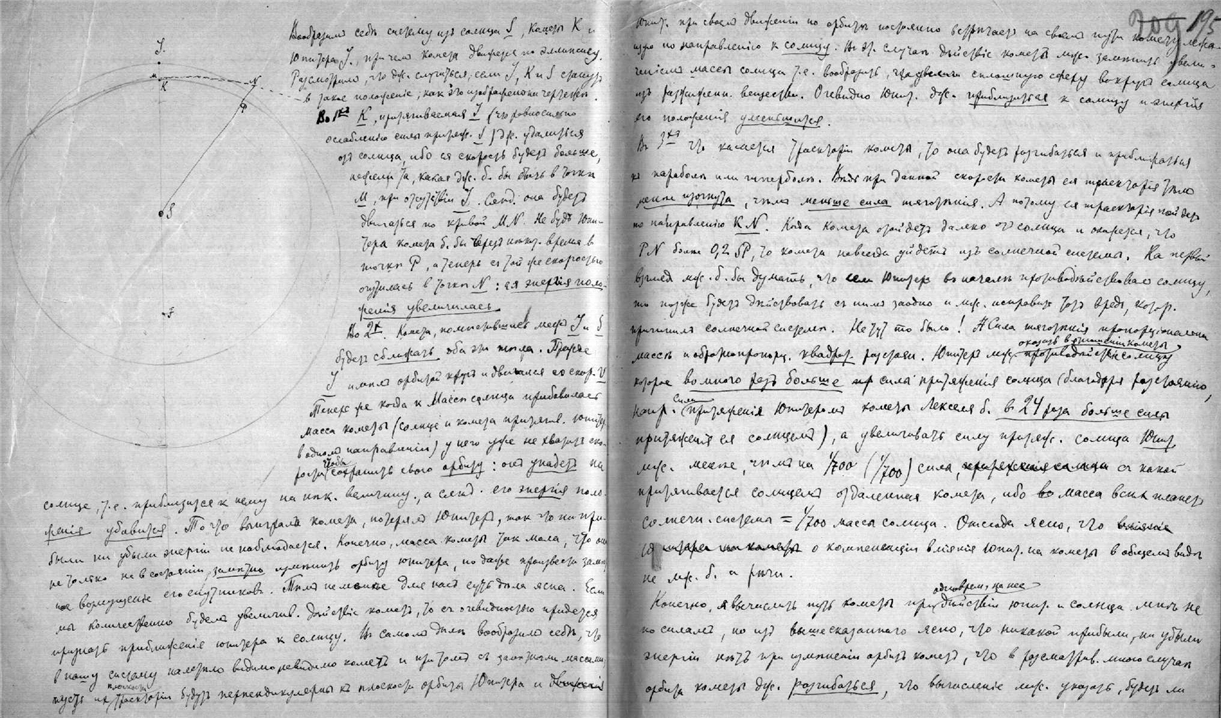 Вообразимъ себѣ систему изъ солнца S, кометы K и
Юпитера J, при чемъ комета движется по эллипсису.
Разсмотримъ, что дѣлается, если J, K и S станутъ
въ такое положеніе, какъ это изображено на чертежѣ.
Во 1хъ K, притягиваемая J (что равносильно
ослабленію силы притяж. S) удалится
отъ солнца, ибо ея скорость будетъ больше,
нежели та, какая б. бы въ точкѣ
M, при отсутствіи J. Слѣд. она будетъ
двигаться по кривой MN. Не будь Юпи-
тера комета б. бы черезъ время въ
точкѣ P, а теперь съ той же скоростью
очутилась въ точкѣ N: ея энергія поло-
женія увеличилась.
Во 2хъ. Комета, помѣстившись между J и S
будетъ сближать оба эти тѣла. Прежде
J имѣлъ орбитой кругъ и двигался со скор. V
Теперь же когда къ массѣ солнца прибавилась
масса кометы (солнце и комета притягив. Юпитеръ
въ одномъ направленіи) у него уже не хватаетъ ско-
рости чтобы сохранить свою орбиту: онъ упадетъ на
солнце, т.е. приблизится къ нему на нѣк. величину, а слѣд. его энергія поло-
женія убавится. То что выиграла комета, потерялъ Юпитеръ, такъ что ни при-
были ни убыли энергіи не наблюдается. Конечно, масса кометы такъ мала, что она
не только не въ состояніи замѣтно измѣнить орбиту Юпитера, но даже произвести замѣт-
ное возмущеніе его спутниковъ. Тѣмъ не менѣе для насъ суть дѣла ясна. Если
мы количественно будемъ увеличив. дѣйствіе кометъ, то съ очевидностью придется
признать приближеніе Юпитера къ солнцу. Въ самомъ дѣлѣ вообразимъ себѣ, что
въ нашу систему налетѣло видимо невидимо кометъ и притомъ съ массами,
пусть плоскости ихъ траекторій будутъ перпендикулярны къ плоскости орбиты Юпитера и
J
K
N
P
S
F
195
Юпит. при своемъ движеніи по орбитѣ постоянно встрѣчаетъ на своемъ пути комету лежа-
щую по направленію къ солнцу. Въ эт. случаѣ дѣйствіе кометъ мож. замѣнить увели-
ченіемъ массы солнца т.е. вообразить, сплошную сферу вокругъ солнца
изъ вещества. Очевидно Юпит. долж. приблизиться къ солнцу и энергія
его положенія уменьшится.
Въ 3хъ что касается траекторіи кометы, то она будетъ разгибаться и приближаться
къ параболѣ или гиперболѣ. Вѣдь при данной скорости кометы ея траекторія тѣмъ
менѣе изогнута, чѣмъ меньше сила тяготѣнія. А потому ея траекторія пойдетъ
по направленію KN. Когда комета отойдетъ далеко отъ солнца и окажется, что
PN болѣе 0,2 SP, то комета навсегда уйдетъ изъ солнечной системы. На первый
взглядъ мож. б. бы думать, что если Юпитеръ въ началѣ противодѣйствовалъ солнцу,
то позже будетъ дѣйствовать съ нимъ заодно и мож. исправить тотъ вредъ, котор.
причинилъ солнечной системѣ. Не тутъ то было! Сила тяготѣнія пропорціональна
массѣ и обратнопропорц. квадрат. разстоян. Юпитеръ мож. оказать въ отношеніи кометы противодѣйствіе солнцу
которое во много разъ больше силы притяженія солнца (благодаря разстоянію,
напр. сила притяженія Юпитеромъ кометы Лекселя б. въ 24 раза больше силы
притяженія ея солнцемъ), а увеличивать силу притяж. солнца Юпит.
мож. менѣе, чѣмъ на 1/700 (1/700) силы, съ какой
притягивается солнцемъ отдаленная комета, ибо масса всѣхъ планетъ
солнечн. системы = 1/700 массы солнца. Отсюда ясно, что
о компенсаціи вліянія Юпит. на кометы въ общемъ видѣ
не мож. б. и рѣчи.
Конечно, вычислить путь кометы при одноврем. на нее дѣйствіи Юпит. и солнца мнѣ не
по силамъ, но изъ вышесказаннаго ясно, что никакой прибыли, ни убыли
энергіи нѣтъ при измѣненіи орбитъ кометъ, что въ разсматрив. мною случаѣ
орбита кометы долж. разгибаться, что вычисленіе мож. указать, будетъ ли